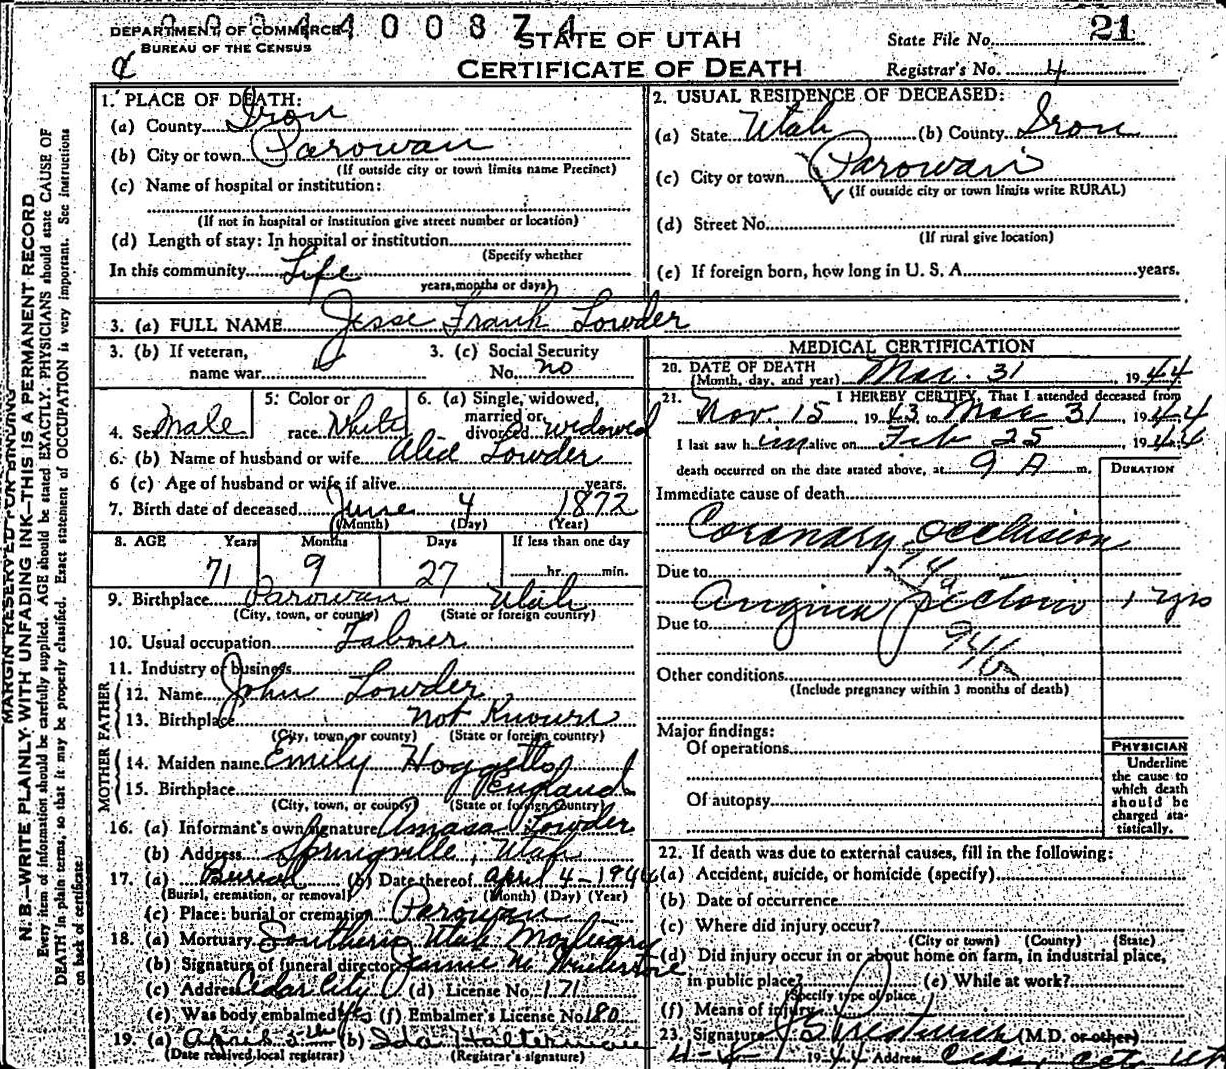 0 0 3 4 4 0 0 8 7 4
DEPARTMENT OF COMMERCE
BUREAU OF THE CENSUS
STATE OF UTAH
CERTIFICATE OF DEATH
State File No. 21
Registrar's No. 4
MARGIN RESERVED FOR BINDING
N. B.—WRITE PLAINLY WITH UNFADING INK—THIS IS A PERMANENT RECORD
Every item of information should be carefully supplied. AGE should be stated EXACTLY. PHYSICIANS should state CAUSE OF
DEATH in plain terms, so that it may be properly classified. Exact statement of OCCUPATION is very important. See instructions
on back of certificate.
1. PLACE OF DEATH:
(a) County Iron
(b) City or town Parowan
(If outside city or town limits name Precinct)
(c) Name of hospital or institution:
(If not in hospital or institution give street number or location)
(d) Length of stay: In hospital or institution
(Specify whether
In this community Life
years, months or days)
2. USUAL RESIDENCE OF DECEASED:
(a) State Utah (b) County Iron
(c) City or town Parowan
(If outside city or town limits write RURAL)
(d) Street No.
(If rural give location)
(e) If foreign born, how long in U. S. A. years.
3. (a) FULL NAME Jesse Frank Lowder
3. (b) If veteran, name war
3. (c) Social Security No. no
4. Sex Male
5. Color or race White
6. (a) Single, widowed, married or divorced widowed
6. (b) Name of husband or wife Alice Lowder
6 (c) Age of husband or wife if alive years.
7. Birth date of deceased June 4 1872
(Month) (Day) (Year)
8. AGE Years Months Days If less than one day
71 9 27 hr. min.
9. Birthplace Parowan Utah
(City, town, or county) (State or foreign country)
10. Usual occupation Labner
11. Industry of business
FATHER
12. Name John Lowder
13. Birthplace not Known
(City, town, or county) (State or foreign country)
MOTHER
14. Maiden name Emily Hoggetts
15. Birthplace England
(City, town, or county) (State or foreign country)
16. (a) Informant's own signature Amasa Lowder
(b) Address Springville, Utah
17. (a) Burial (b) Date thereof April 4-1944
(Burial, cremation, or removal) (Month) (Day) (Year)
(c) Place: burial or cremation Parowan
18. (a) Mortuary Southern Utah Mortuary
(b) Signature of funeral director
(c) Address Cedar City (d) License No. 171
(e) Was body embalmed? yes (f) Embalmer's License No. 180
19. (a) April 5th (b) Ida Halterman
(Date received local registrar) (Registrar's signature)
MEDICAL CERTIFICATION
20. DATE OF DEATH
(Month, day, and year) Mar. 31, 1944
21. I HEREBY CERTIFY, That I attended deceased from
Nov. 15 1943 to Mar 31 1944
I last saw him alive on Feb 25 1944
death occurred on the date stated above, at 9 A m.
DURATION
Immediate cause of death
Coronary occlusion
94a
Due to
Angina pectoris 1 yrs
Due to
94b
Other conditions
(Include pregnancy within 3 months of death)
Major findings:
Of operations
Of autopsy
PHYSICIAN
Underline
the cause to
which death
should be
charged sta-
tistically.
22. If death was due to external causes, fill in the following:
(a) Accident, suicide, or homicide (specify)
(b) Date of occurrence
(c) Where did injury occur?
(City or town) (County) (State)
(d) Did injury occur in or about home on farm, in industrial place,
in public place? (e) While at work?
(Specify type of place)
(f) Means of injury
23. Signature (M.D. or other)
4-4- 1944 Address Cedar City Ut